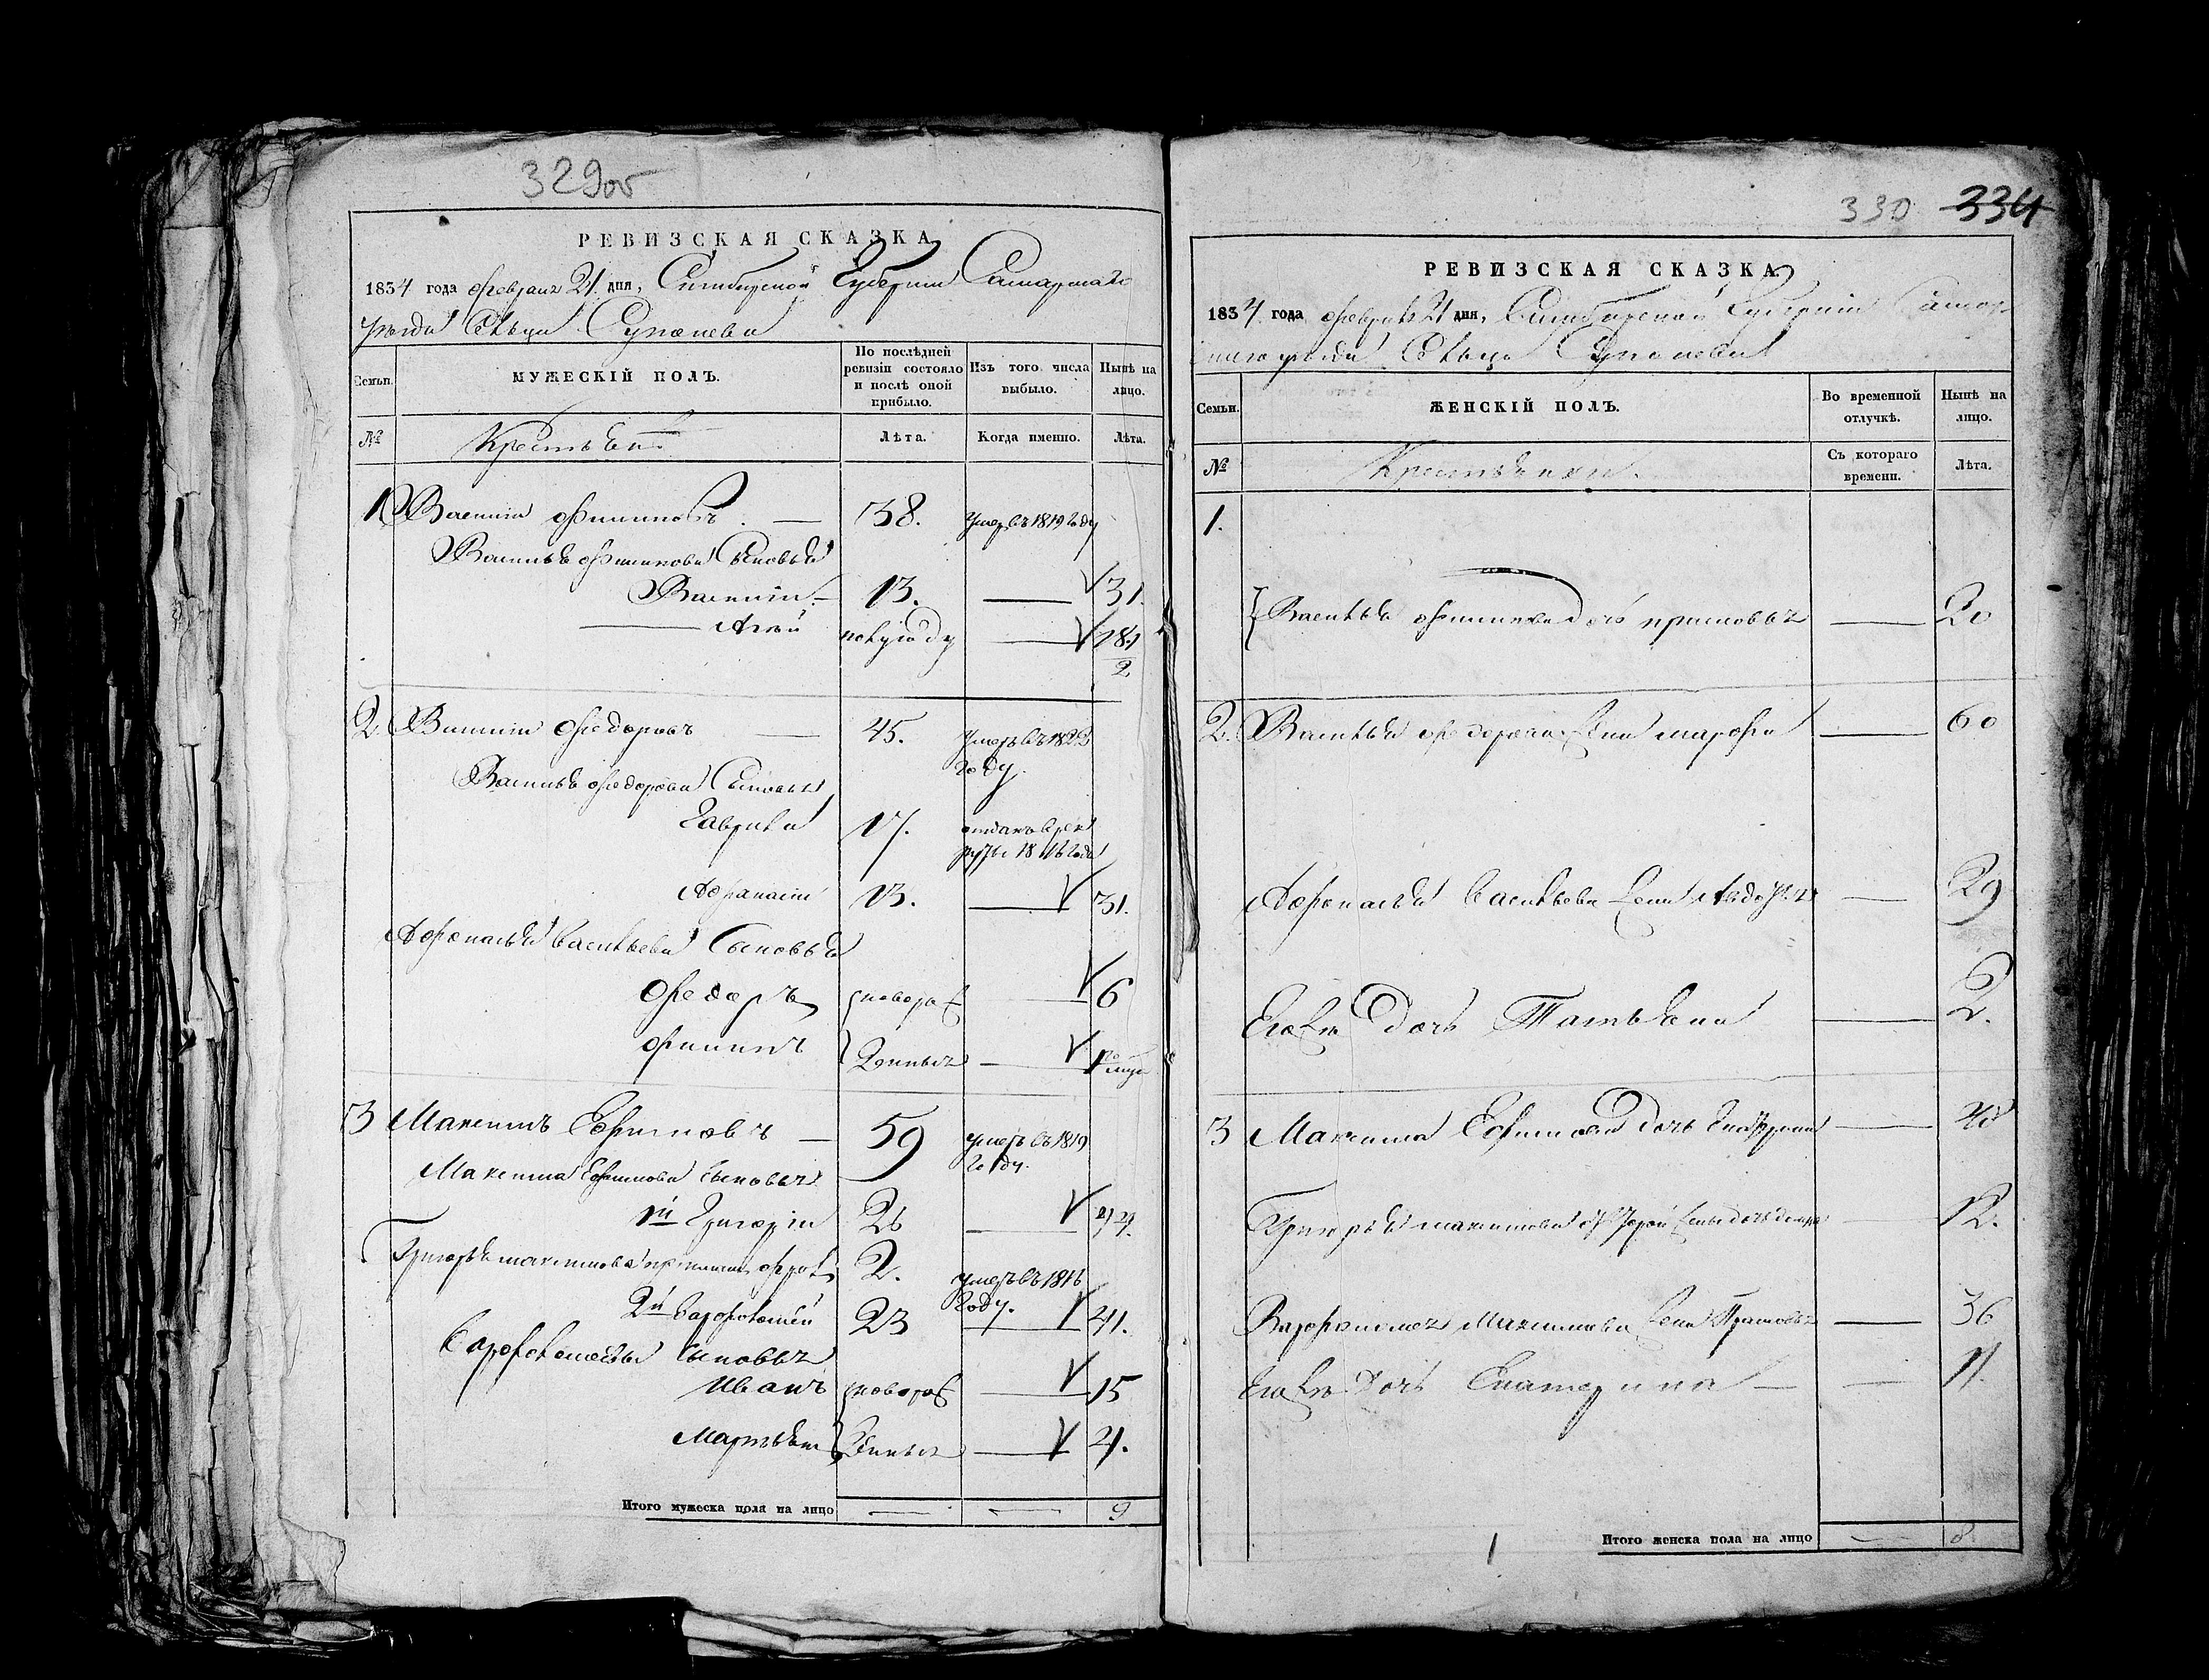 329об
РЕВИЗСКАЯ СКАЗКА
1834 года февраля 21 дня, Симбирской Губернии Самарскаго
уезда Сельца
Семьи.
МУЖЕСКІЙ ПОЛЪ.
По послѣдней ревизіи состояло и послѣ оной прибыло.
Изъ того числа выбыло.
Нынѣ на лицо.
№
Крестьяне
Лѣта.
Когда именно.
Лѣта.
1 Василій Филиповъ — 38. умер въ 1819 году
Василья Филипова Сыновья
Василій — 13. — 31.
— — 18 1/2
2 Василій Федоровъ — 45. умеръ въ 182
году.
Василья Федорова Сыновья
Гаврила 17. отданъ в рек
руты 1816 года
Афанасій 13. — 31.
Афонасья Васильева Сыновья
Федоръ новорож — 6
Филипъ денныя — 1
3 Максимъ Ефимовъ — 59 умеръ въ 1819
году.
Максима Ефимова сыновья
1й Григорій 26 — 44.
Григорья Максимова 2. умеръ въ 1816
году.
2й Варфоломей 23 — 41.
Варфоломея сыновья
Иванъ новорож — 15
Мартьян денныя — 4.
Итого мужеска пола на лицо — — 9
330 334
РЕВИЗСКАЯ СКАЗКА
1834 года февраля 21 дня, Симбирской Губерніи Самар
скаго уезда Сельца
Семьи.
ЖЕНСКІЙ ПОЛЪ.
Во временной отлучкѣ.
Нынѣ на лицо.
№
Крестьянки.
Съ котораго времени.
Лѣта.
1.
Василья Филипова дочь — 20
2. Василья Федорова жена Марфа — 60
Афонасья Васильева жена Авдотья — 29
Его же дочь Татьяна — 2.
3 Максима Ефимова дочь — 40
Григорья Максимова — 12.
Варфоломея Максимова жена — 36
Его же дочь Екатерина — — 11.
Итого женска пола на лицо — 8